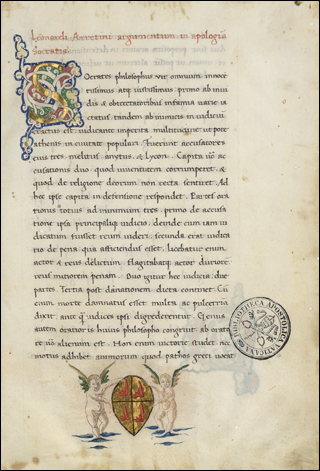 Leonardi Arretini argumentum in apologiã
Socratis
Socrates philosophus vir omnium innocẽ
tissimus atq; iustissimus primo ab inui
dis & obtrectatoribus infamia uarie ia
ctatus, tandem ab inimicis in iudiciũ
tractus est iudicante imperita multitudine ut pote
athenis in ciuitate populari Fuerunt accusatores
eius tres melitus anytus, & Lycon Capita uo ac
cusationis duo quod iuuentutem corrumperet &
quod de religione deorum non recta sentiret Ad
hec ipse capita in defensione respondet Partes ora
tionis totius ad minimum tres primo de accusa
tione ipsa principaliq; iudicio deinde cum iam iu
dicatum fuisset reum uideri, secunda erat iudica
tio de pena qua afficiendus esset licebatur enim
actor & reus delictum Flagitabatq; actor duriorẽ
reus mitiorem penam Duo igitur hec iudicia due
partes Tertia post damnationem dicta continet Cũ
enim morte damnatus esset multa ac pulcerria
dixit antq; uidices ipsi digrederentur Genus
autem orationis huius philosopho congruit ab orato
re uo alienum est Non enim uictorie studet nec
motus adhibet animorum quod pathos greci uocãt
BIBLIOTHECA APOSTOLICA
VATICANA